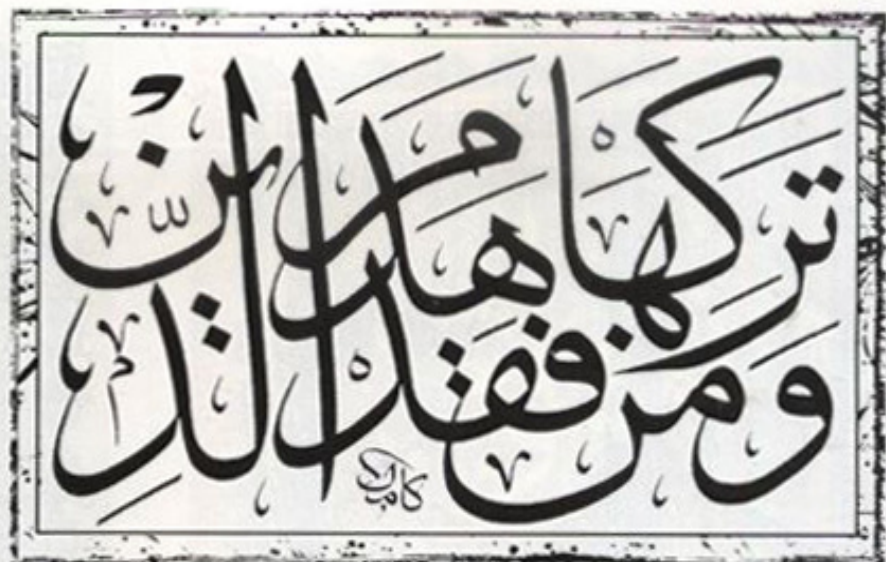 ومن تركها فقد هدم الدين
كامل